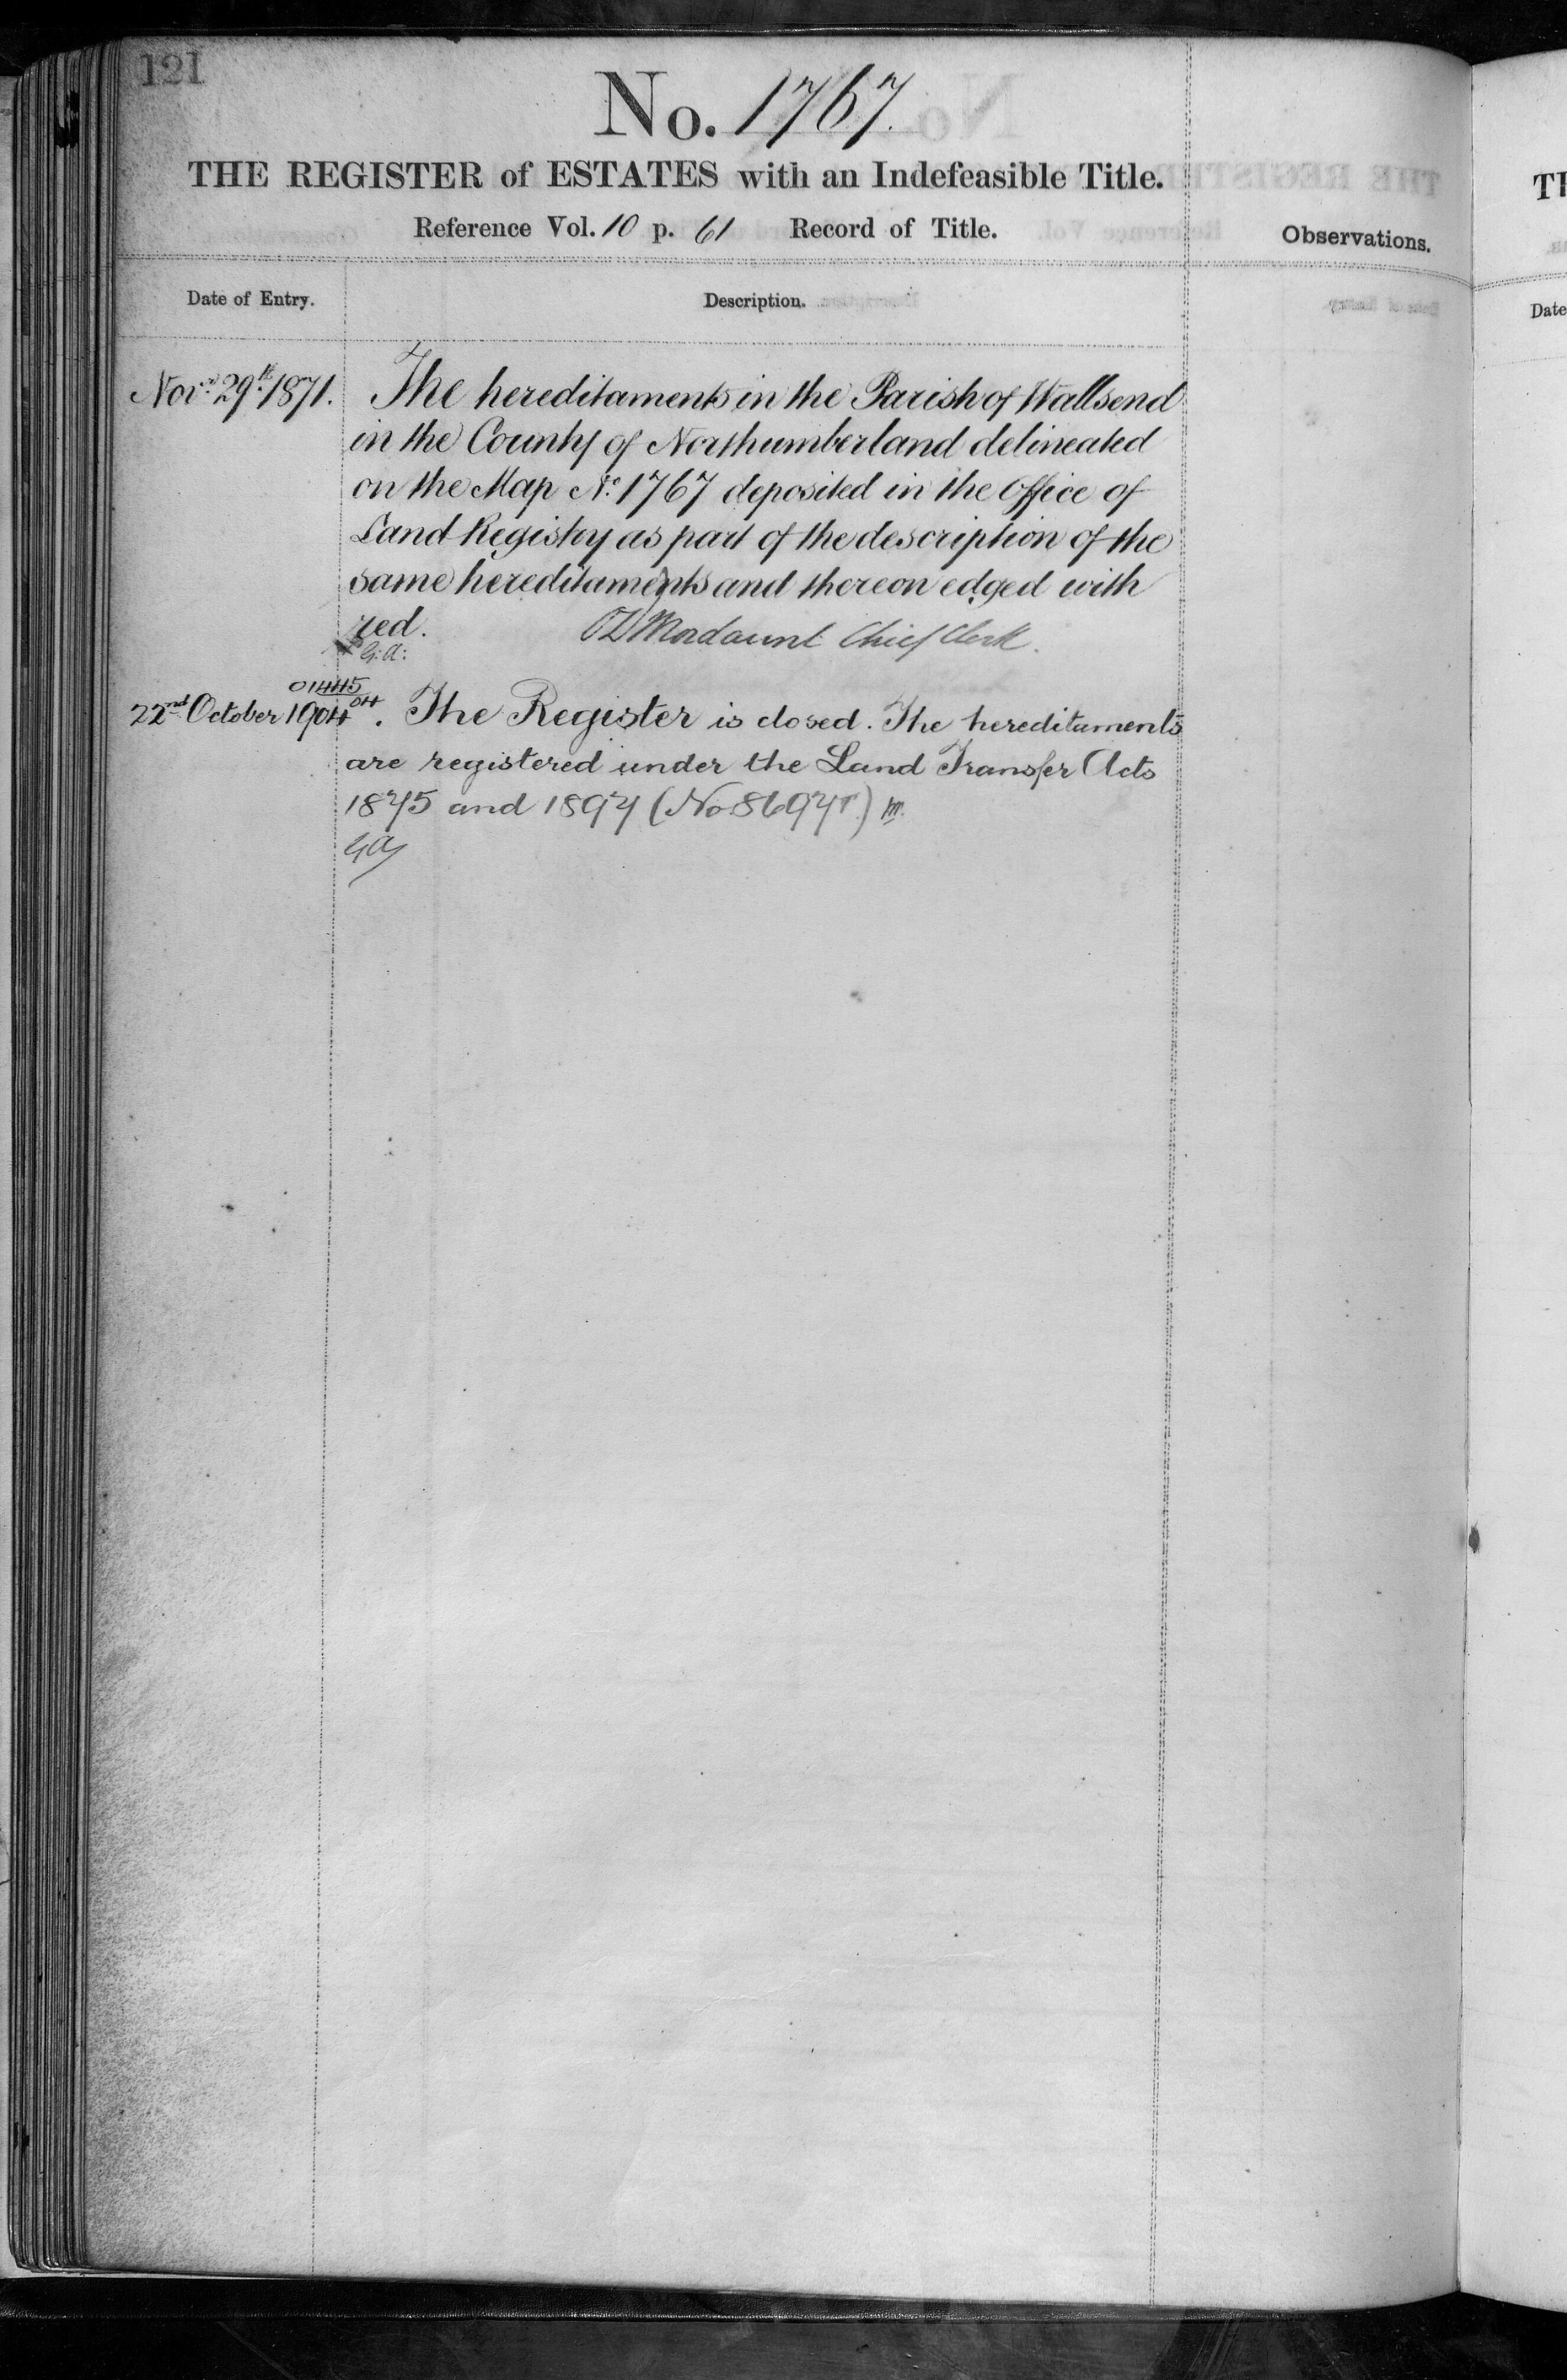 121
No. 1767.
THE REGISTER of ESTATES with an Indefeasible Title.
Reference Vol. 10 p. 61 Record of Title.
Observations.
Date of Entry.
Description.
Novr. 29th. 1871. The hereditaments in the Parish of Wallsend
in the County of Northumberland delineated
on the Map No. 1767 deposited in the Office of
Land Registry as part of the description of the
same hereditaments and thereon edged with
red. Mordaunt Chief Clerk.
G.A:
01445
04
22nd October 1904. The Register is closed. The hereditaments
are registered under the Land Transfer Acts
1875 and 1897 (No. 8697T.)
GA
Date